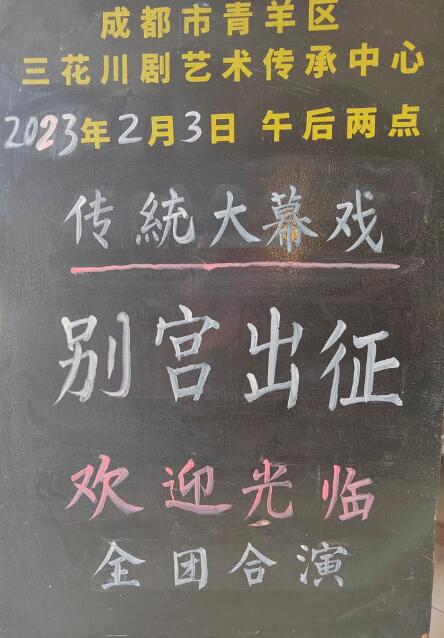 成都市青羊区
三花川剧艺术传承中心
2023年2月3日 午后两点
传統大幕戏
别宫出征
欢迎光临
全团合演